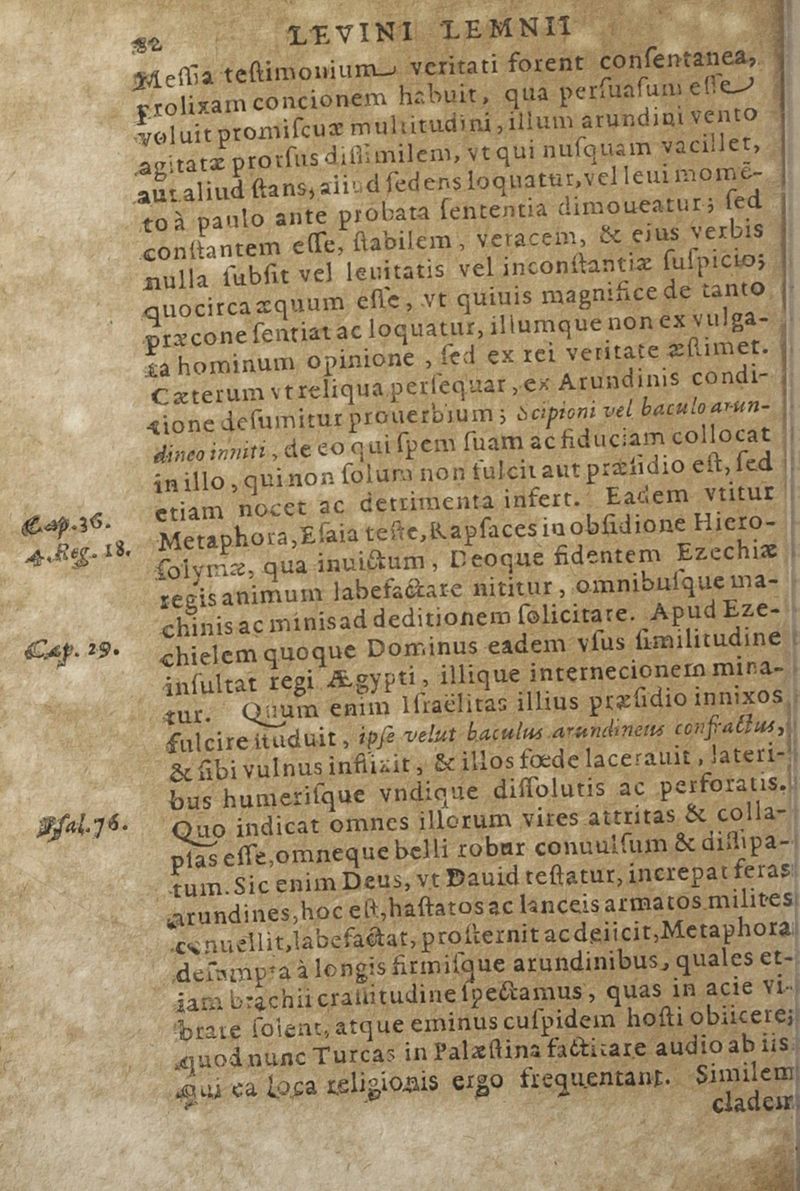 82 LEVINI LEMNII
Messia testimonium veritati forent consentanea,
prolixam concionem habuit, qua persuasum esse
voluit promiscuæ multitudini, illum arundini vento
agitatæ prorsus dissimilem, vt qui nusquam vacillet,
aut aliud stans, aliud sedens loquatur, vel leui momē-
to à paulo ante probata sententia dimoueatur; sed
constantem esse, stabilem, veracem, & eius verbis
nulla subsit vel leuitatis vel inconstantiæ suspicio;
quocirca æquum esse, vt quiuis magnifice de tanto
præcone sentiat ac loquatur, illumque non ex vulga-
ta hominum opinione, sed ex rei veritate æstimet.
Cæterum vt reliqua persequar, ex Arundinis condi-
tione desumitur prouerbium; Scipioni vel baculo arun-
dineo inniti, de eo qui spem suam ac fiduciam collocat
in illo, qui non solum non fulcit aut præsidio est, sed
etiam nocet ac detrimenta infert. Eadem vtitur
Cap. 36. Metaphora, Esaia teste, Rapsaces in obsidione Hiero-
4. Reg. 18. solymæ, qua inuictum, Deoque fidentem Ezechiæ
regis animum labefactare nititur, omnibusque ma-
chinis ac minis ad deditionem solicitare. Apud Eze-
Cap. 29. chielem quoque Dominus eadem vsus similitudine
insultat regi Ægypti, illique internecionem mina-
tur. Quum enim Israëlitas illius præsidio innixos
fulcire studuit, ipse velut baculus arundineus confractus,
& sibi vulnus inflixit, & illos foede lacerauit, lateri-
bus humerisque vndique dissolutis ac perforatis.
Psal. 76. Quo indicat omnes illorum vires attritas & colla-
psas esse, omneque belli robur conuulsum & dissipa-
tum. Sic enim Deus, vt Dauid testatur, increpat feras
arundines, hoc est, hastatos ac lanceis armatos milites
conuellit, labefactat, prosternit ac deiicit, Metaphora
desumpta à longis firmisque arundinibus, quales et-
iam brachii crassitudine spectamus, quas in acie vi-
brare solent, atque eminus cuspidem hosti obiicere;
quod nunc Turcas in Palæstina factitare audio ab iis
qui ea loca religionis ergo frequentant. Similem
cladem